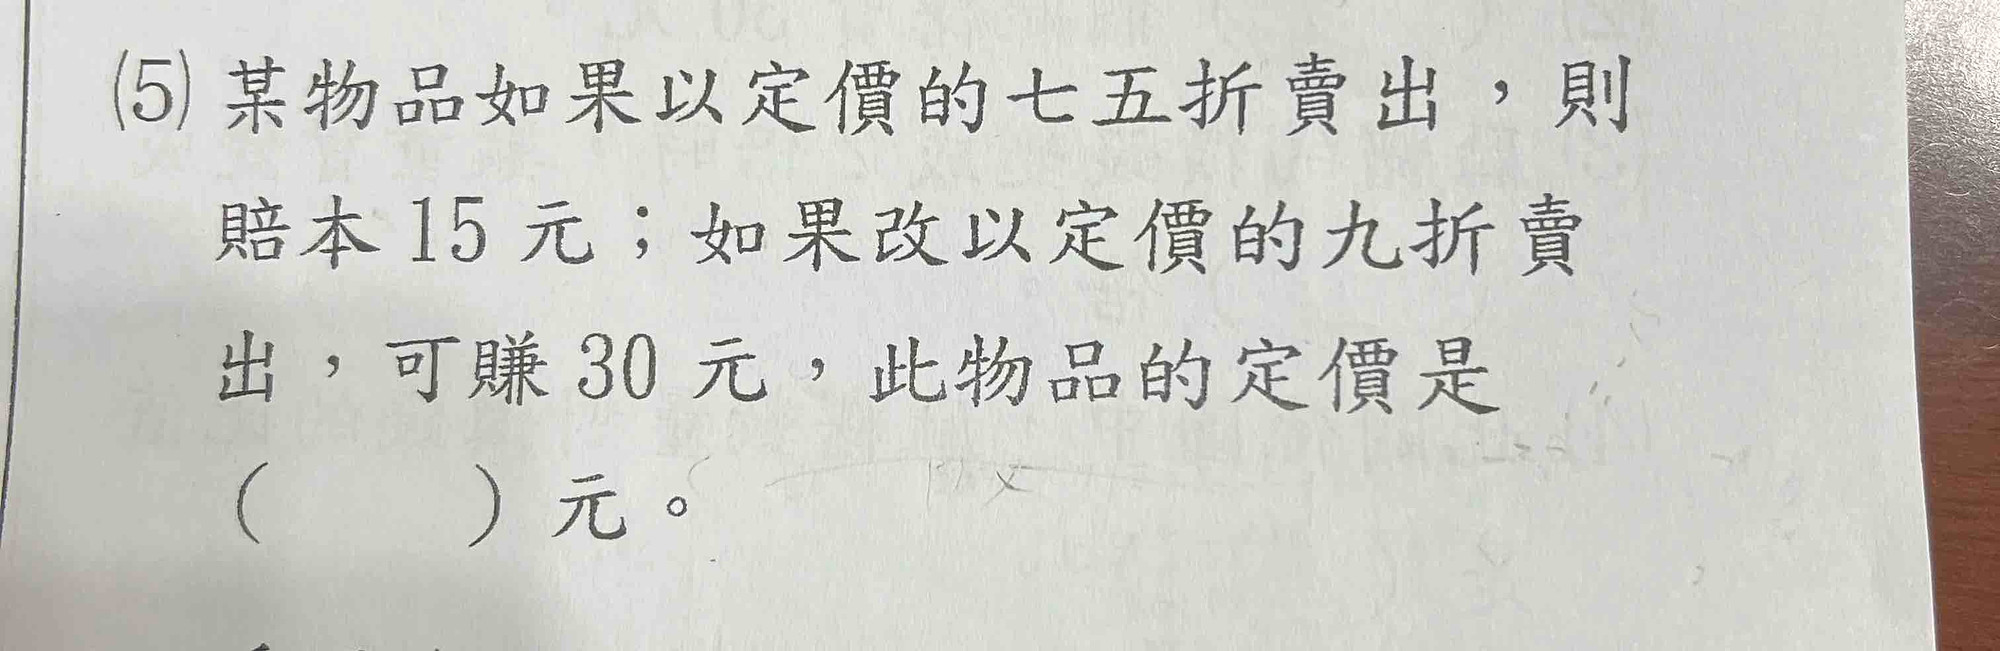 (5) 某物品如果以定價的七五折賣出，則
賠本 15 元；如果改以定價的九折賣
出，可賺 30 元，此物品的定價是
（　　　）元。